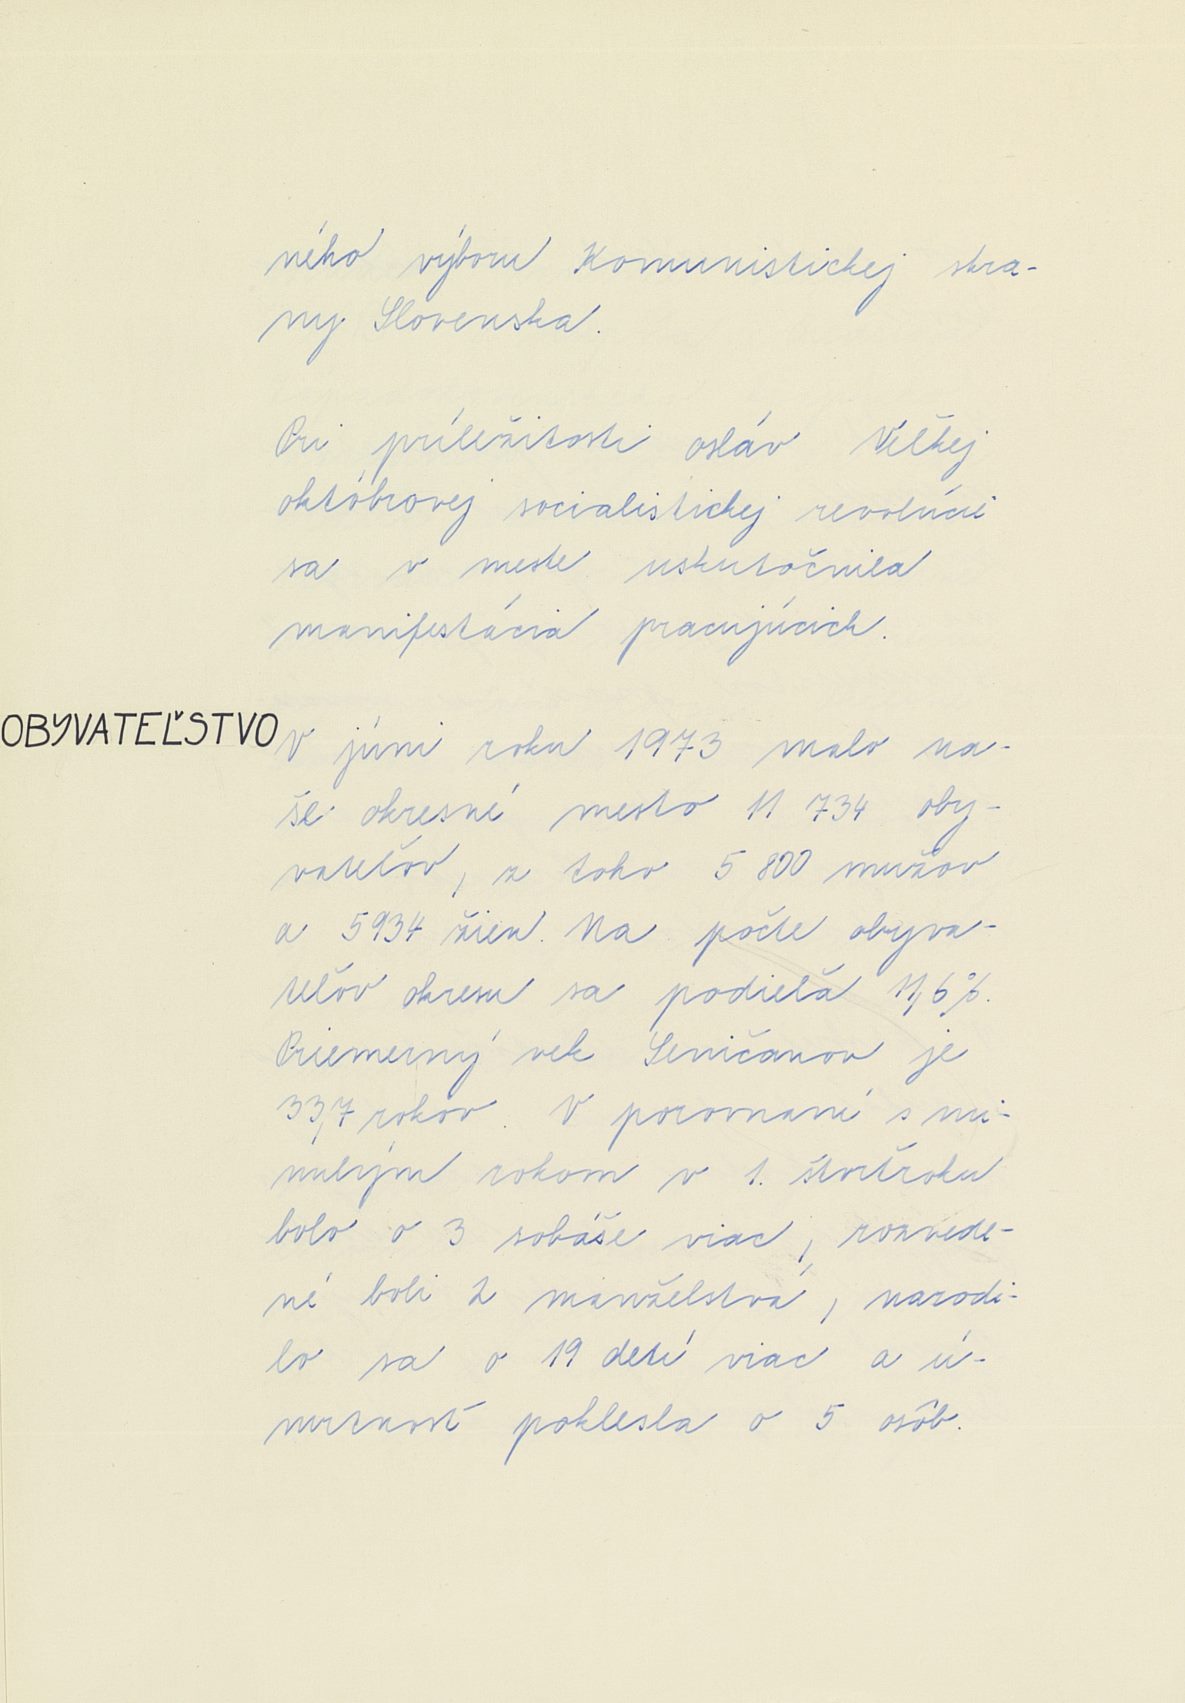 ného výboru Komunistickej stra-
ny Slovenska.
Pri príležitosti osláv Veľkej
októbrovej socialistickej revolúcie
sa v meste uskutočnila
manifestácia pracujúcich.
OBYVATEĽSTVO
V júni roku 1973 malo na-
še okresné mesto 11 734 oby-
vateľov, z toho 5 800 mužov
a 5934 žien. Na počte obyva-
teľov okresu sa podieľa 11,6%.
Priemerný vek Seničanov je
33,7 rokov. V porovnaní s mi-
nulým rokom v 1. štvrťroku
bolo o 3 sobáše viac, rozvede-
né boli 2 manželstvá, narodi-
lo sa o 19 detí viac a ú-
mrtnosť poklesla o 5 osôb.